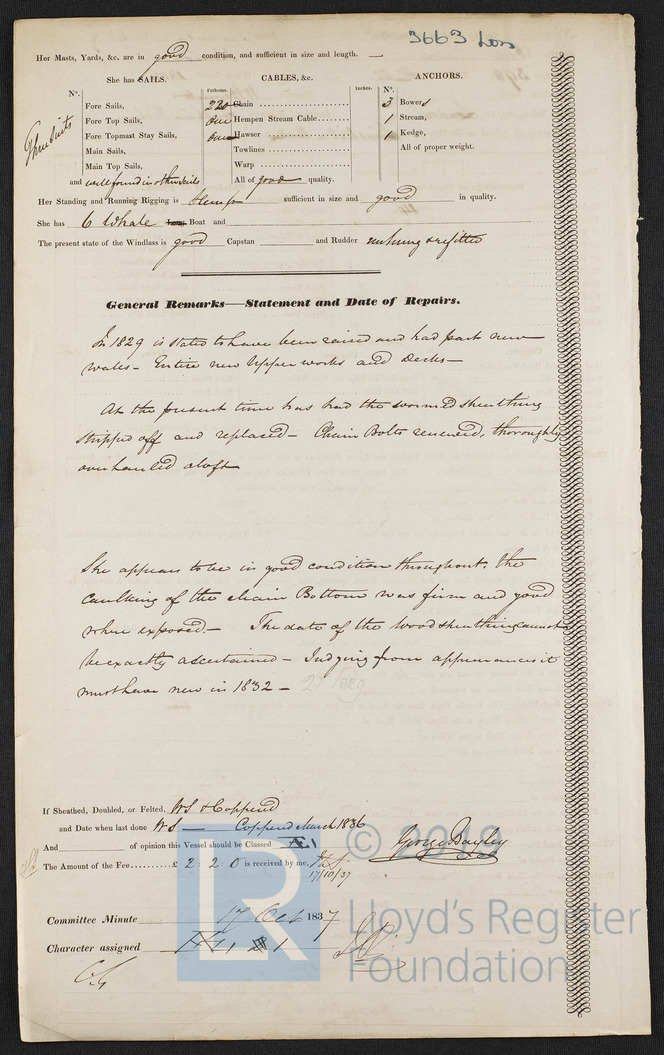 3663 Lon
Her Masts, Yards, &c. are in good condition, and sufficient in size and length.
She has SAILS.
CABLES, &c.
ANCHORS.
Nº.
Fathoms.
Inches.
Nº.
Three Suits
Fore Sails,
Fore Top Sails,
Fore Topmast Stay Sails,
Main Sails,
Main Top Sails,
and well found in other sails
220 Chain
One Hempen Stream Cable
One Hawser
Towlines
Warp
All of good quality.
3 Bowers
1 Stream,
1 Kedge,
All of proper weight.
Her Standing and Running Rigging is Hemp sufficient in size and good in quality.
She has 6 Whale Boat and
The present state of the Windlass is good Capstan and Rudder unhung & refitted
General Remarks—Statement and Date of Repairs.
In 1829 is stated to have been raised and had part new
wales - Entire new Upper works and Decks -
At the present time has had the wormed sheathing
stripped off and replaced - Chain Bolts renewed, thoroughly
overhauled aloft
She appears to be in good condition throughout. The
caulking of the Bottom was firm and good
where exposed. - The date of the wood sheathing cannot
be exactly ascertained - Judging from appearances it
must have new in 1832 - 1829
If Sheathed, Doubled, or Felted, WS & Coppered
and Date when last done WS — Coppered March 1836
And of opinion this Vessel should be Classed Æ 1
The Amount of the Fee £ 2 : 2 : 0 is received by me,
17/10/37
George Bayley
Committee Minute 17 Oct 1837
Character assigned Æ 1
© 2019
LR
Lloyd's Register
Foundation